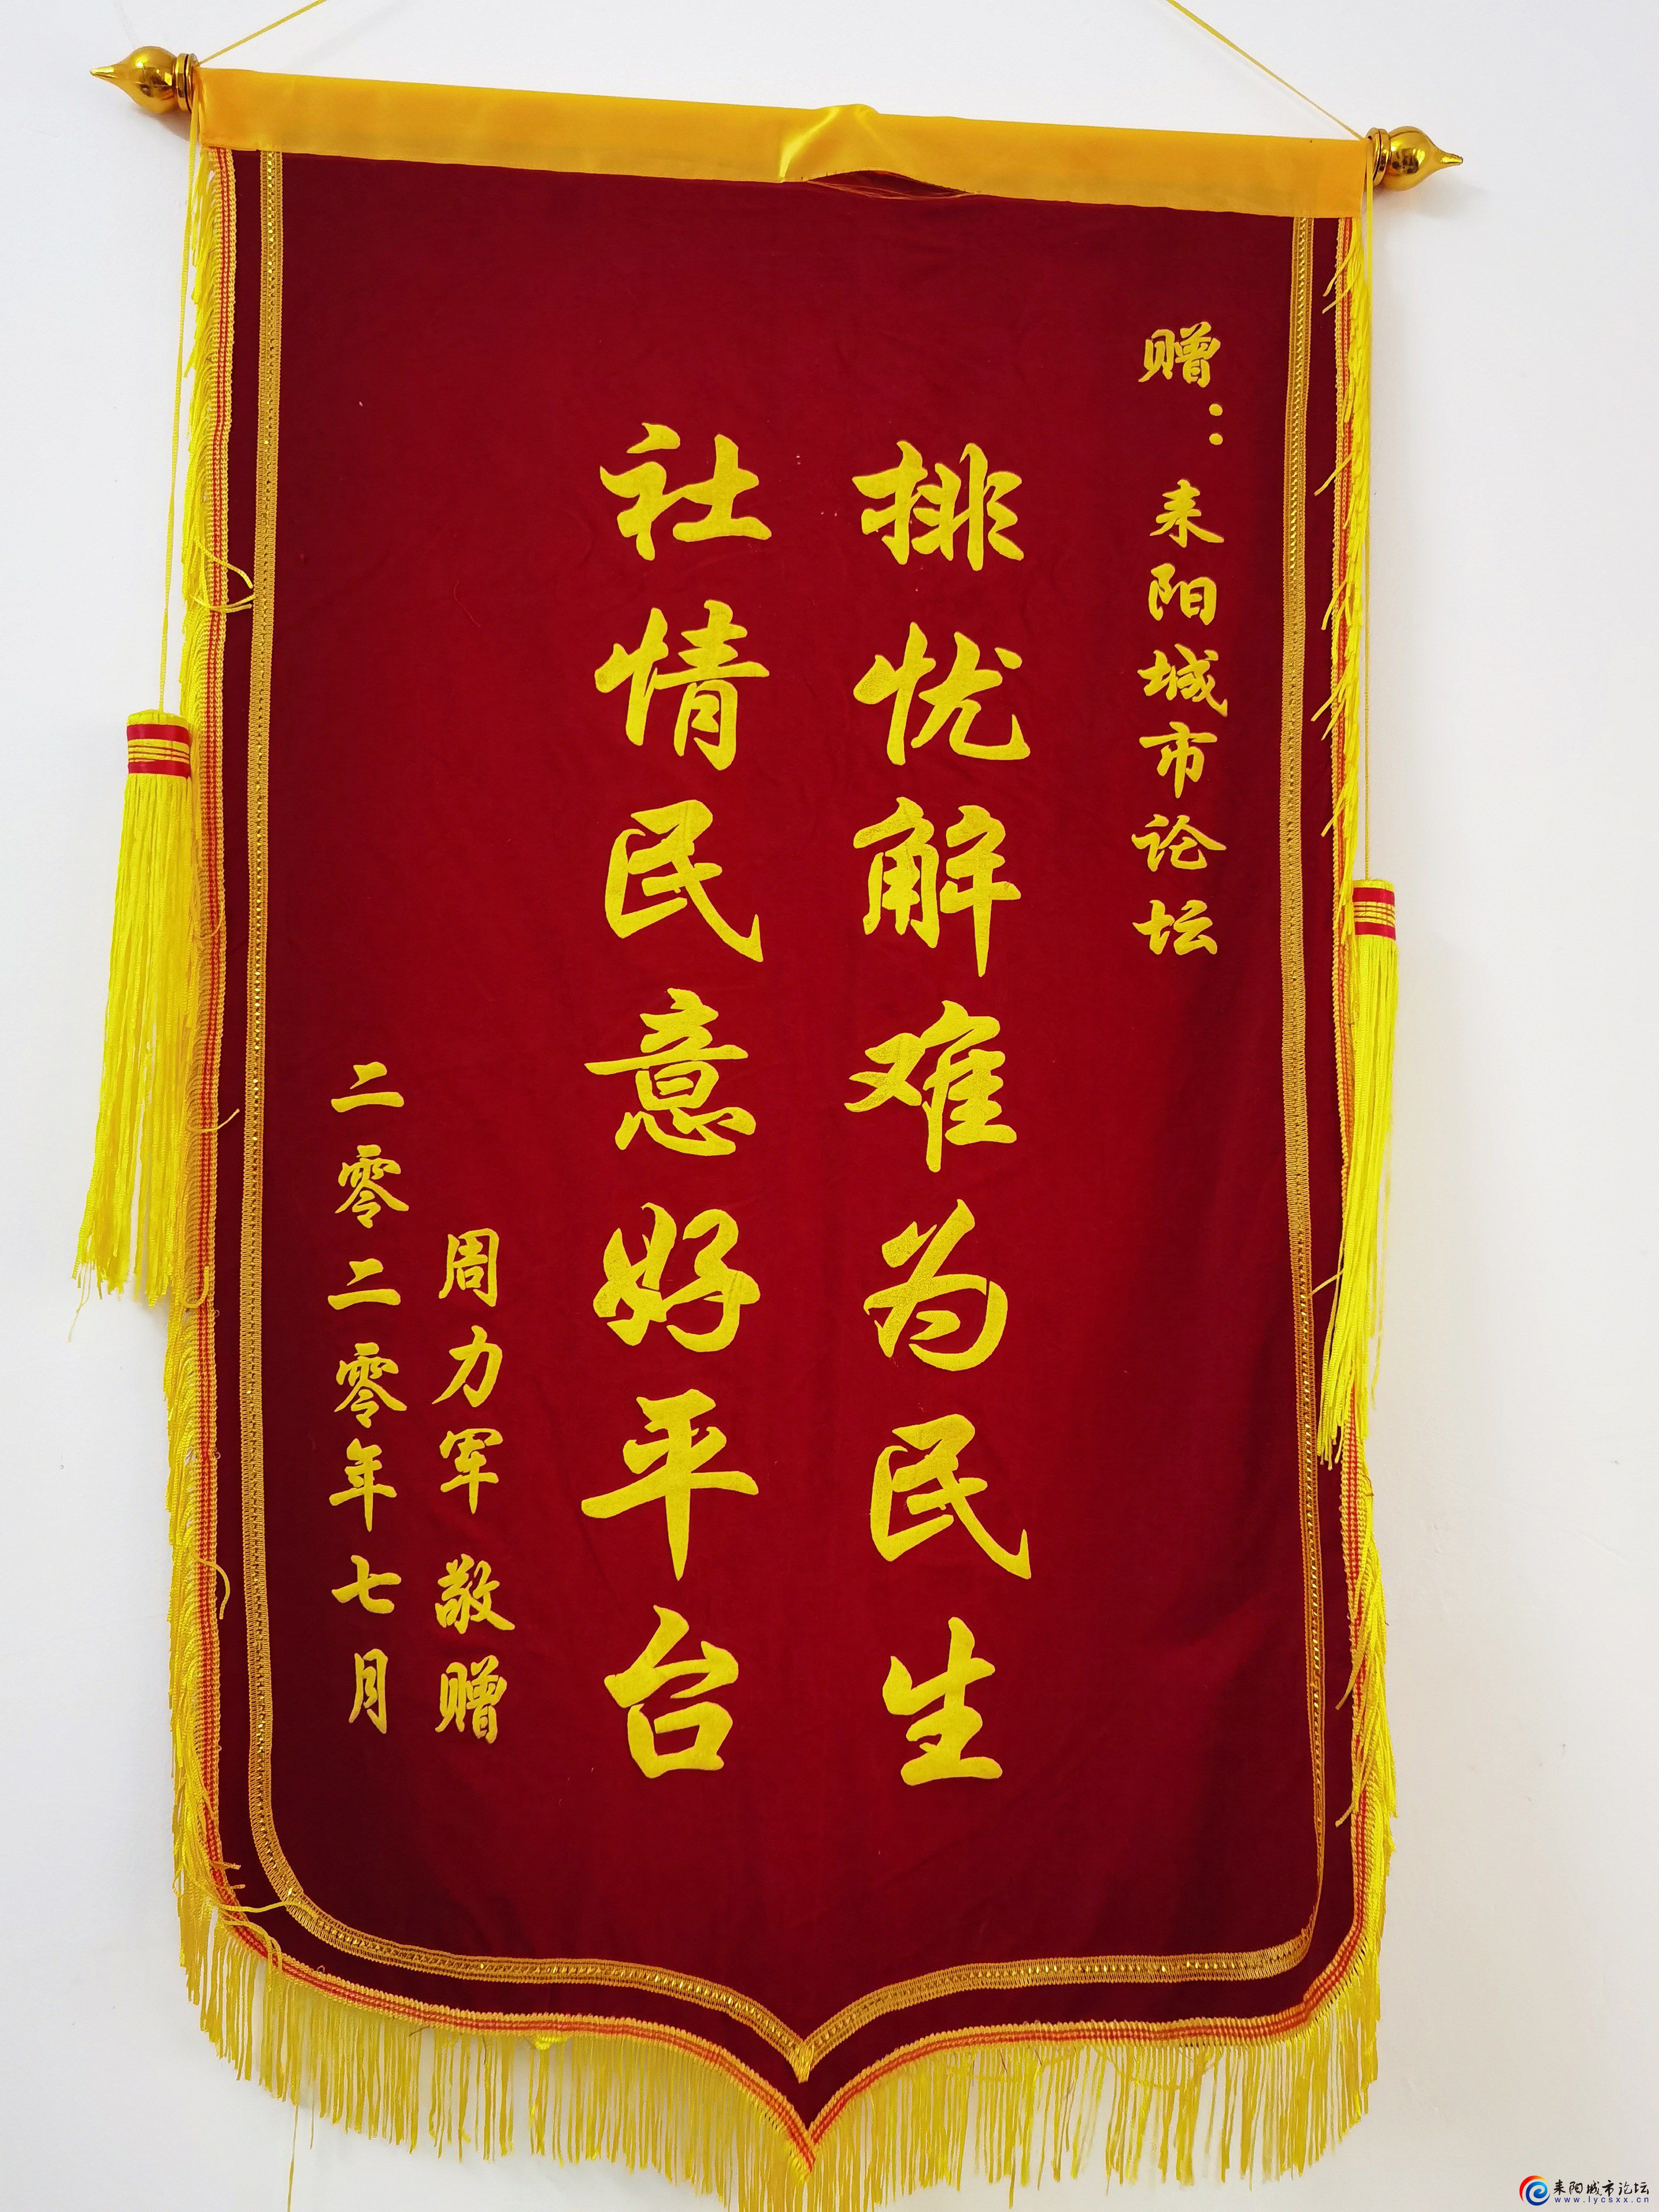 赠：耒阳城市论坛
排忧解难为民生
社情民意好平台
周力军 敬赠
二零二零年七月
耒阳城市论坛
www.lycsxx.cn